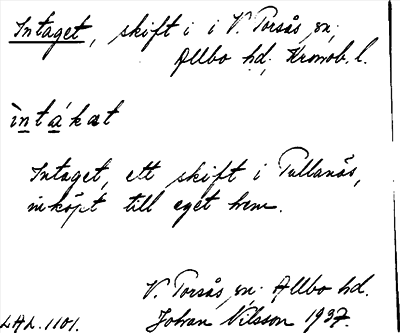 Intaget, skift i i V. Torsås sn,
Allbo hd, Kronob. l.
ìntákæt
Intaget, ett skift i Tullanäs,
inköpt till eget hem.
V. Torsås sn. Allbo hd.
LAL. 1101. Johan Nilsson 1937.